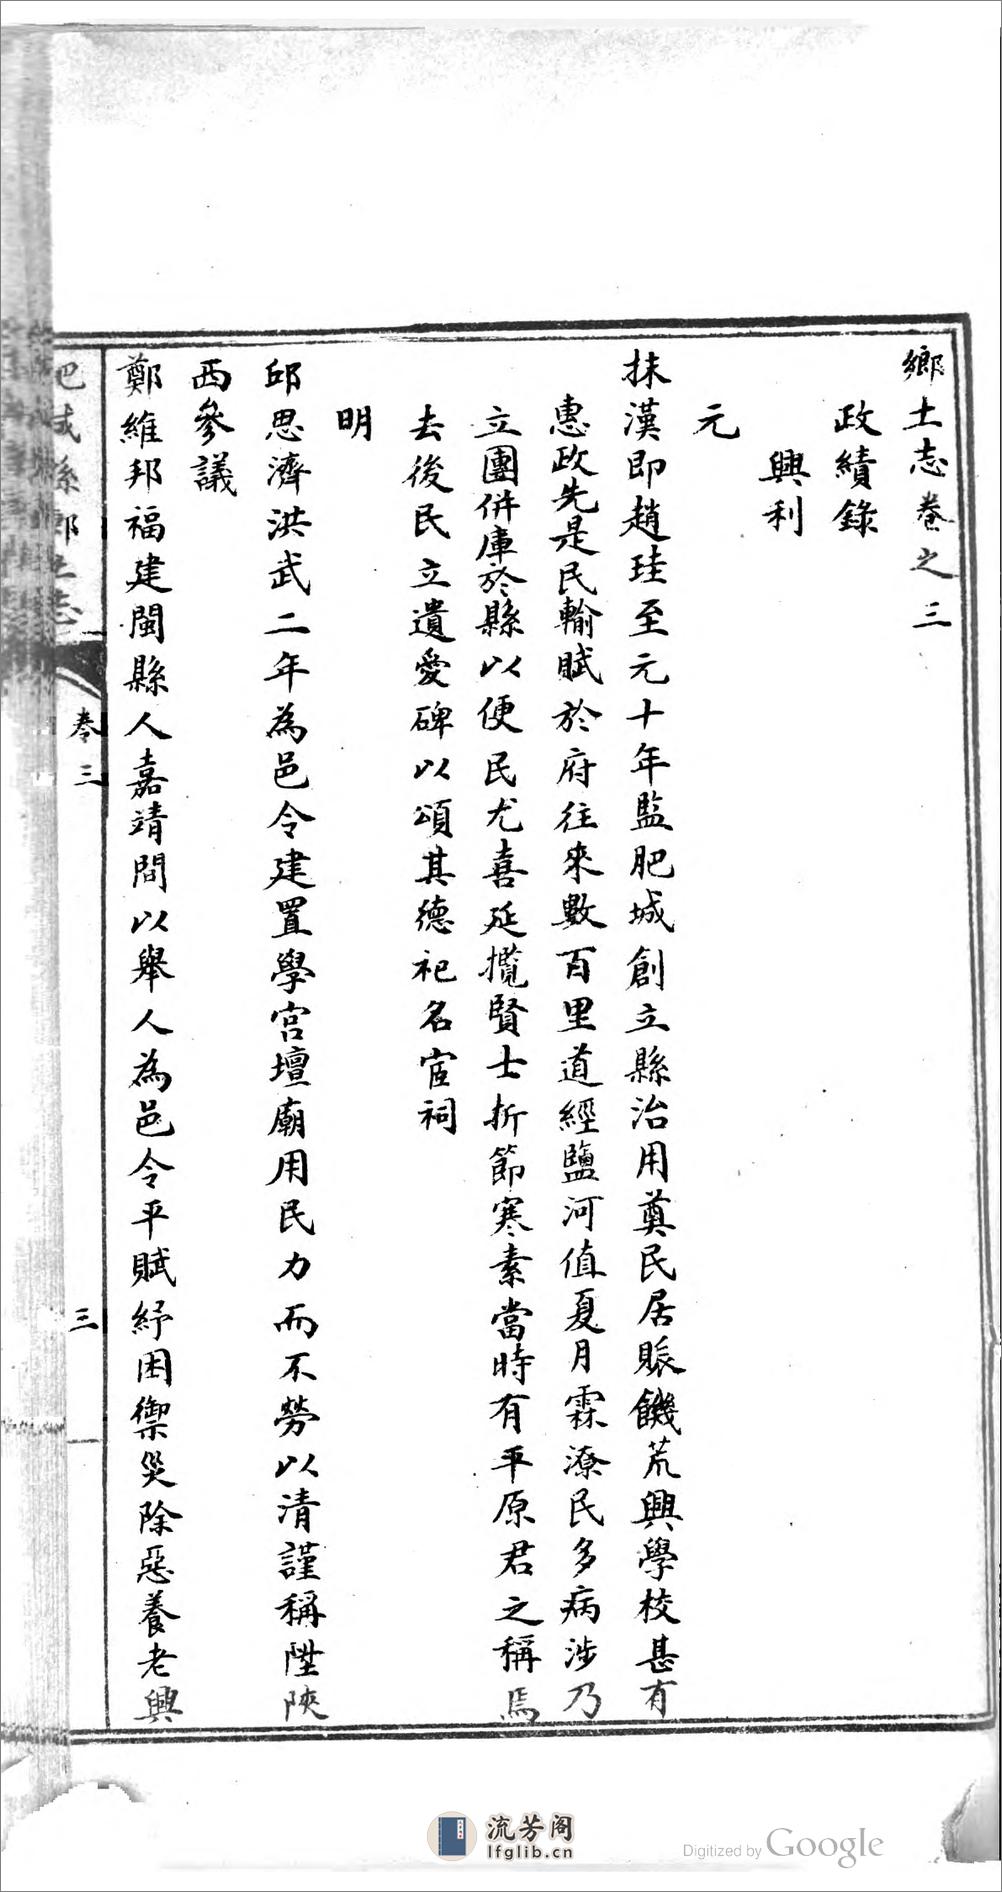 鄉土志卷之三
政績錄
興利
元
抹漢即趙珪至元十年監肥城創立縣治用奠民居賑饑荒興學校甚有
惠政先是民輸賦於府往來數百里道經鹽河值夏月霖潦民多病涉乃
立團併庫於縣以便民尤喜延攬賢士折節寒素當時有平原君之稱焉
去後民立遺愛碑以頌其德祀名宦祠
明
邱思濟洪武二年為邑令建置學宮壇廟用民力而不勞以清謹稱陞陝
西參議
鄭維邦福建閩縣人嘉靖間以舉人為邑令平賦紓困禦災除惡養老興
肥城縣鄉土志
卷三
三
流芳閣
lfglib.cn
Digitized by Google